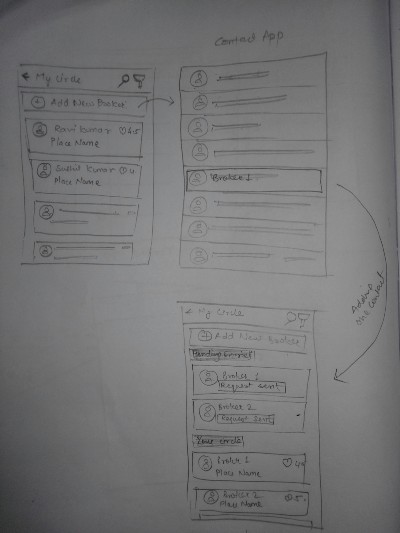 Contact App
← My Circle
Add New Broker
Ravi Kumar 4.5
Place Name
Kumar 4
Place Name
Broker 1
Adding
one contact
← My Circle
Add New Broker
Pending Invites
Broker 1
Request sent
Broker 2
Request Sent
Your circle
Broker 1
Place Name
Broker 2
Place Name